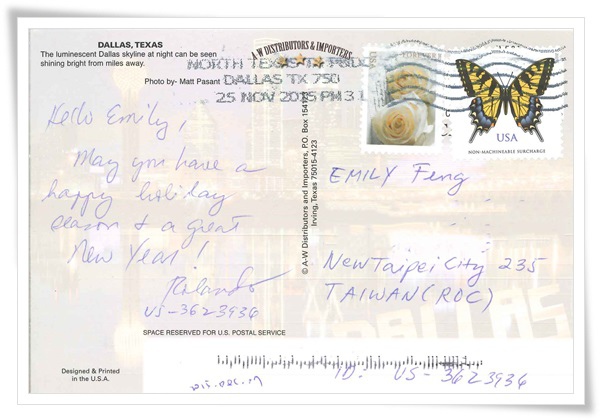 DALLAS, TEXAS
The luminescent Dallas skyline at night can be seen
shining bright from miles away.
Photo by- Matt Pasant
A-W DISTRIBUTORS & IMPORTERS
NORTH TEXAS TX P&DC
DALLAS TX 750
25 NOV 2015 PM 3 L
USA
NON-MACHINEABLE SURCHARGE
Hello Emily,
May you have a
happy holiday
season & a great
New Year!
Rolando
US-3623936
© A-W Distributors and Importers, P.O. Box 154123
Irving, Texas 75015-4123
EMILY Feng
New Taipei City 235
TAIWAN (ROC)
DALLAS
SPACE RESERVED FOR U.S. POSTAL SERVICE
Designed & Printed
in the U.S.A.
ID: US-3623936